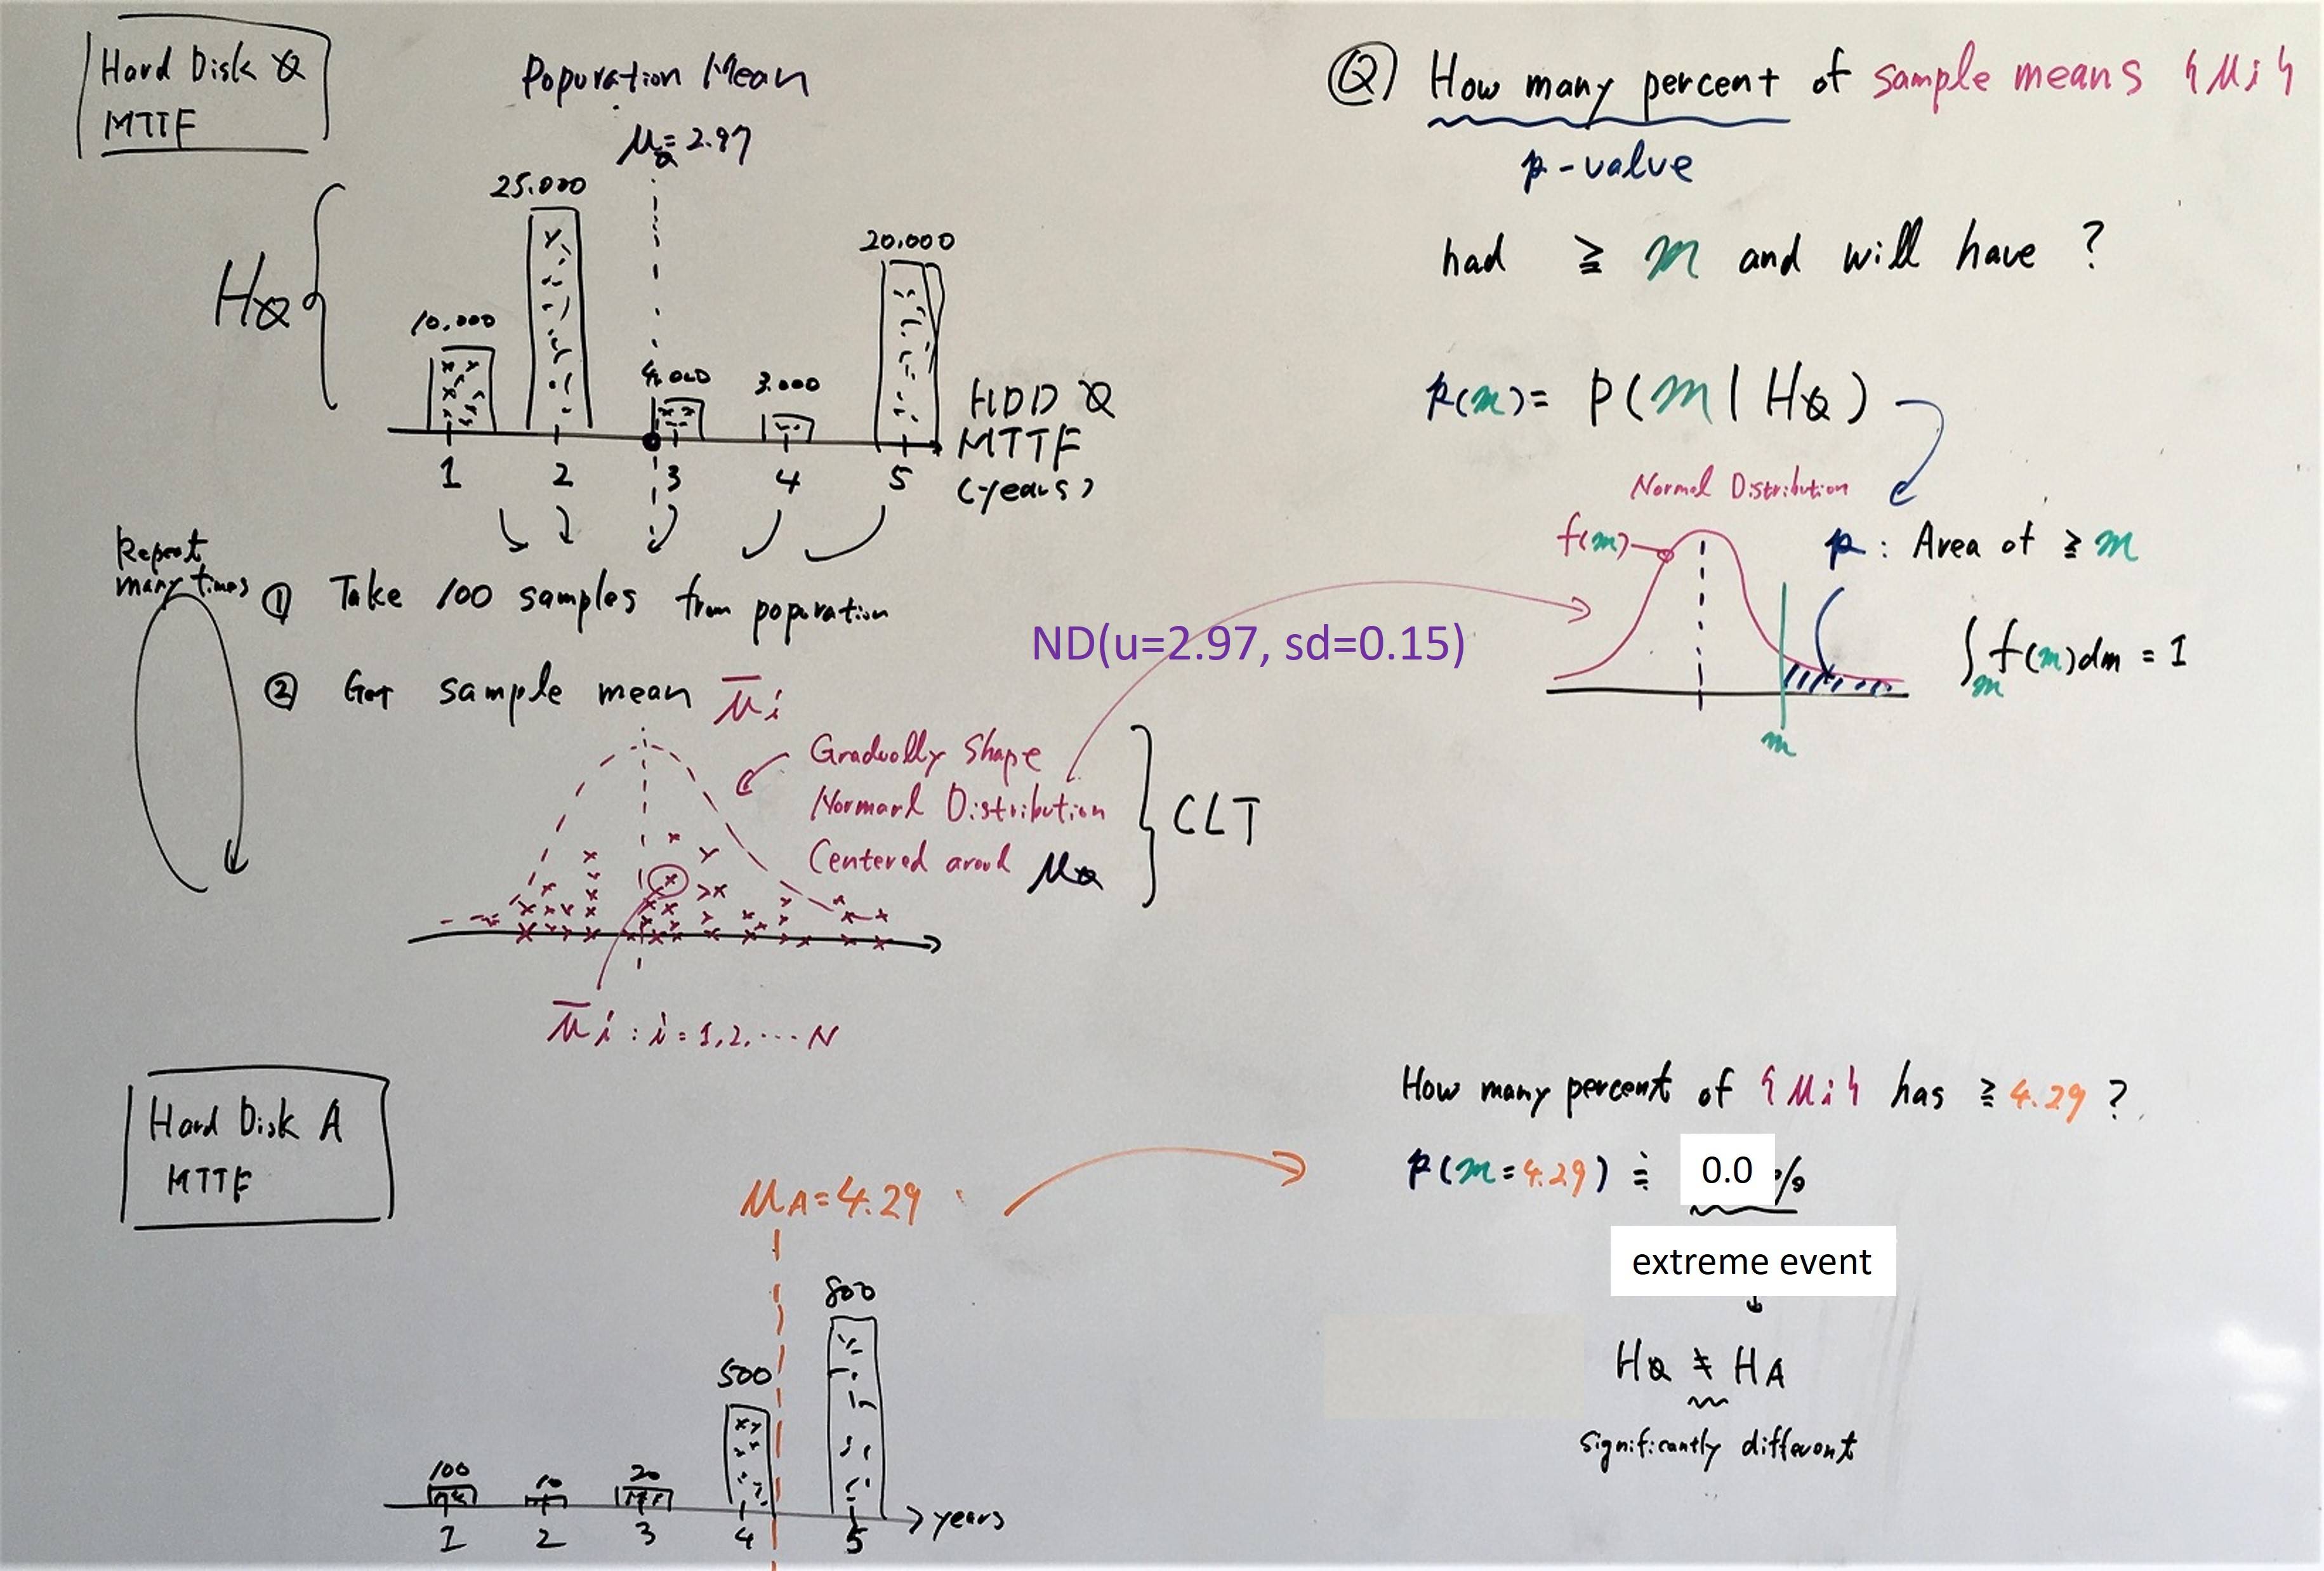 Hard Disk Q
MTTF
Popuration Mean
μQ = 2.97
HQ
10.000
25.000
4.000
3.000
20.000
1 2 3 4 5
HDD Q
MTTF
(years)
Repeat
many times
① Take 100 samples from popuration
② Get sample mean μ̄i
Gradually Shape
Normarl Distribution
Centered aroud μQ
CLT
μ̄i : i = 1,2, ... N
ND(u=2.97, sd=0.15)
Q How many percent of sample means {μi}
p-value
had ≧ m and will have ?
p(m) = P(m | HQ)
Normal Distribution
f(m)
p : Area of ≧ m
m
∫m f(m)dm = 1
Hard Disk A
MTTF
μA = 4.29
100
10
20
500
800
1 2 3 4 5
years
How many percent of {μi} has ≧ 4.29 ?
p(m = 4.29) ≒ 0.0 %
extreme event
↓
HQ ≠ HA
significantly different